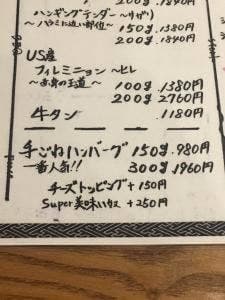 200g.1840円
ハンギングテンダー〜(サガリ)
〜ハラミに近い部位〜 150g.1380円
200g.1840円
US産
フィレミニョン〜ヒレ
〜赤身の王道〜 100g.1380円
200g 2760円
牛タン .1180円
手ごねハンバーグ 150g.980円
一番人気!! 300g.1960円
チーズトッピング+150円
Super美味いタレ +250円